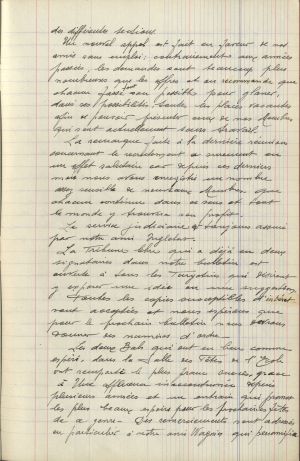 des différentes sections.
Un nouvel appel est fait en faveur de nos
amis sans emploi; contrairement aux années
passées les demandes sont beaucoup plus
nombreuses que les offres et on recommande que
chacun fasse son possible pour glaner,
dans ses possibilités toutes les places vacantes
afin de pouvoir présenter ceux de nos Membres
qui sont actuellement sans travail.
La remarque faite à la dernière réunion
concernant le recrutement a sûrement eu
un effet salutaire car depuis ces derniers
mois nous avons enregistré un nombre
assez sensible de nouveaux Membres. Que
chacun continue dans ce sens et tout
le monde y trouvera son profit.
Le service judiciaire est toujours assuré
par notre ami
La Tribune libre qui a déjà eu deux
signataires dans notre bulletin est
ouverte à tous les Turgotins qui désirent
y exposer une idée ou une suggestion.
Toutes les copies susceptibles d'intérêt
sont acceptées et nous espérons que
pour le prochain bulletin nous devrons
donner des numéros d'ordre.
Les deux Bals ont eu lieu comme
espéré, dans la Salle des Fêtes de l'Ecole
ont remporté le plus franc succès, grâce
à une affluence inaccoutumée depuis
plusieurs années et un entrain qui promet
les plus beaux espoirs pour les prochaines fêtes
de ce genre. Des remerciements sont adressés
en particulier à notre ami Wagner qui personnifia